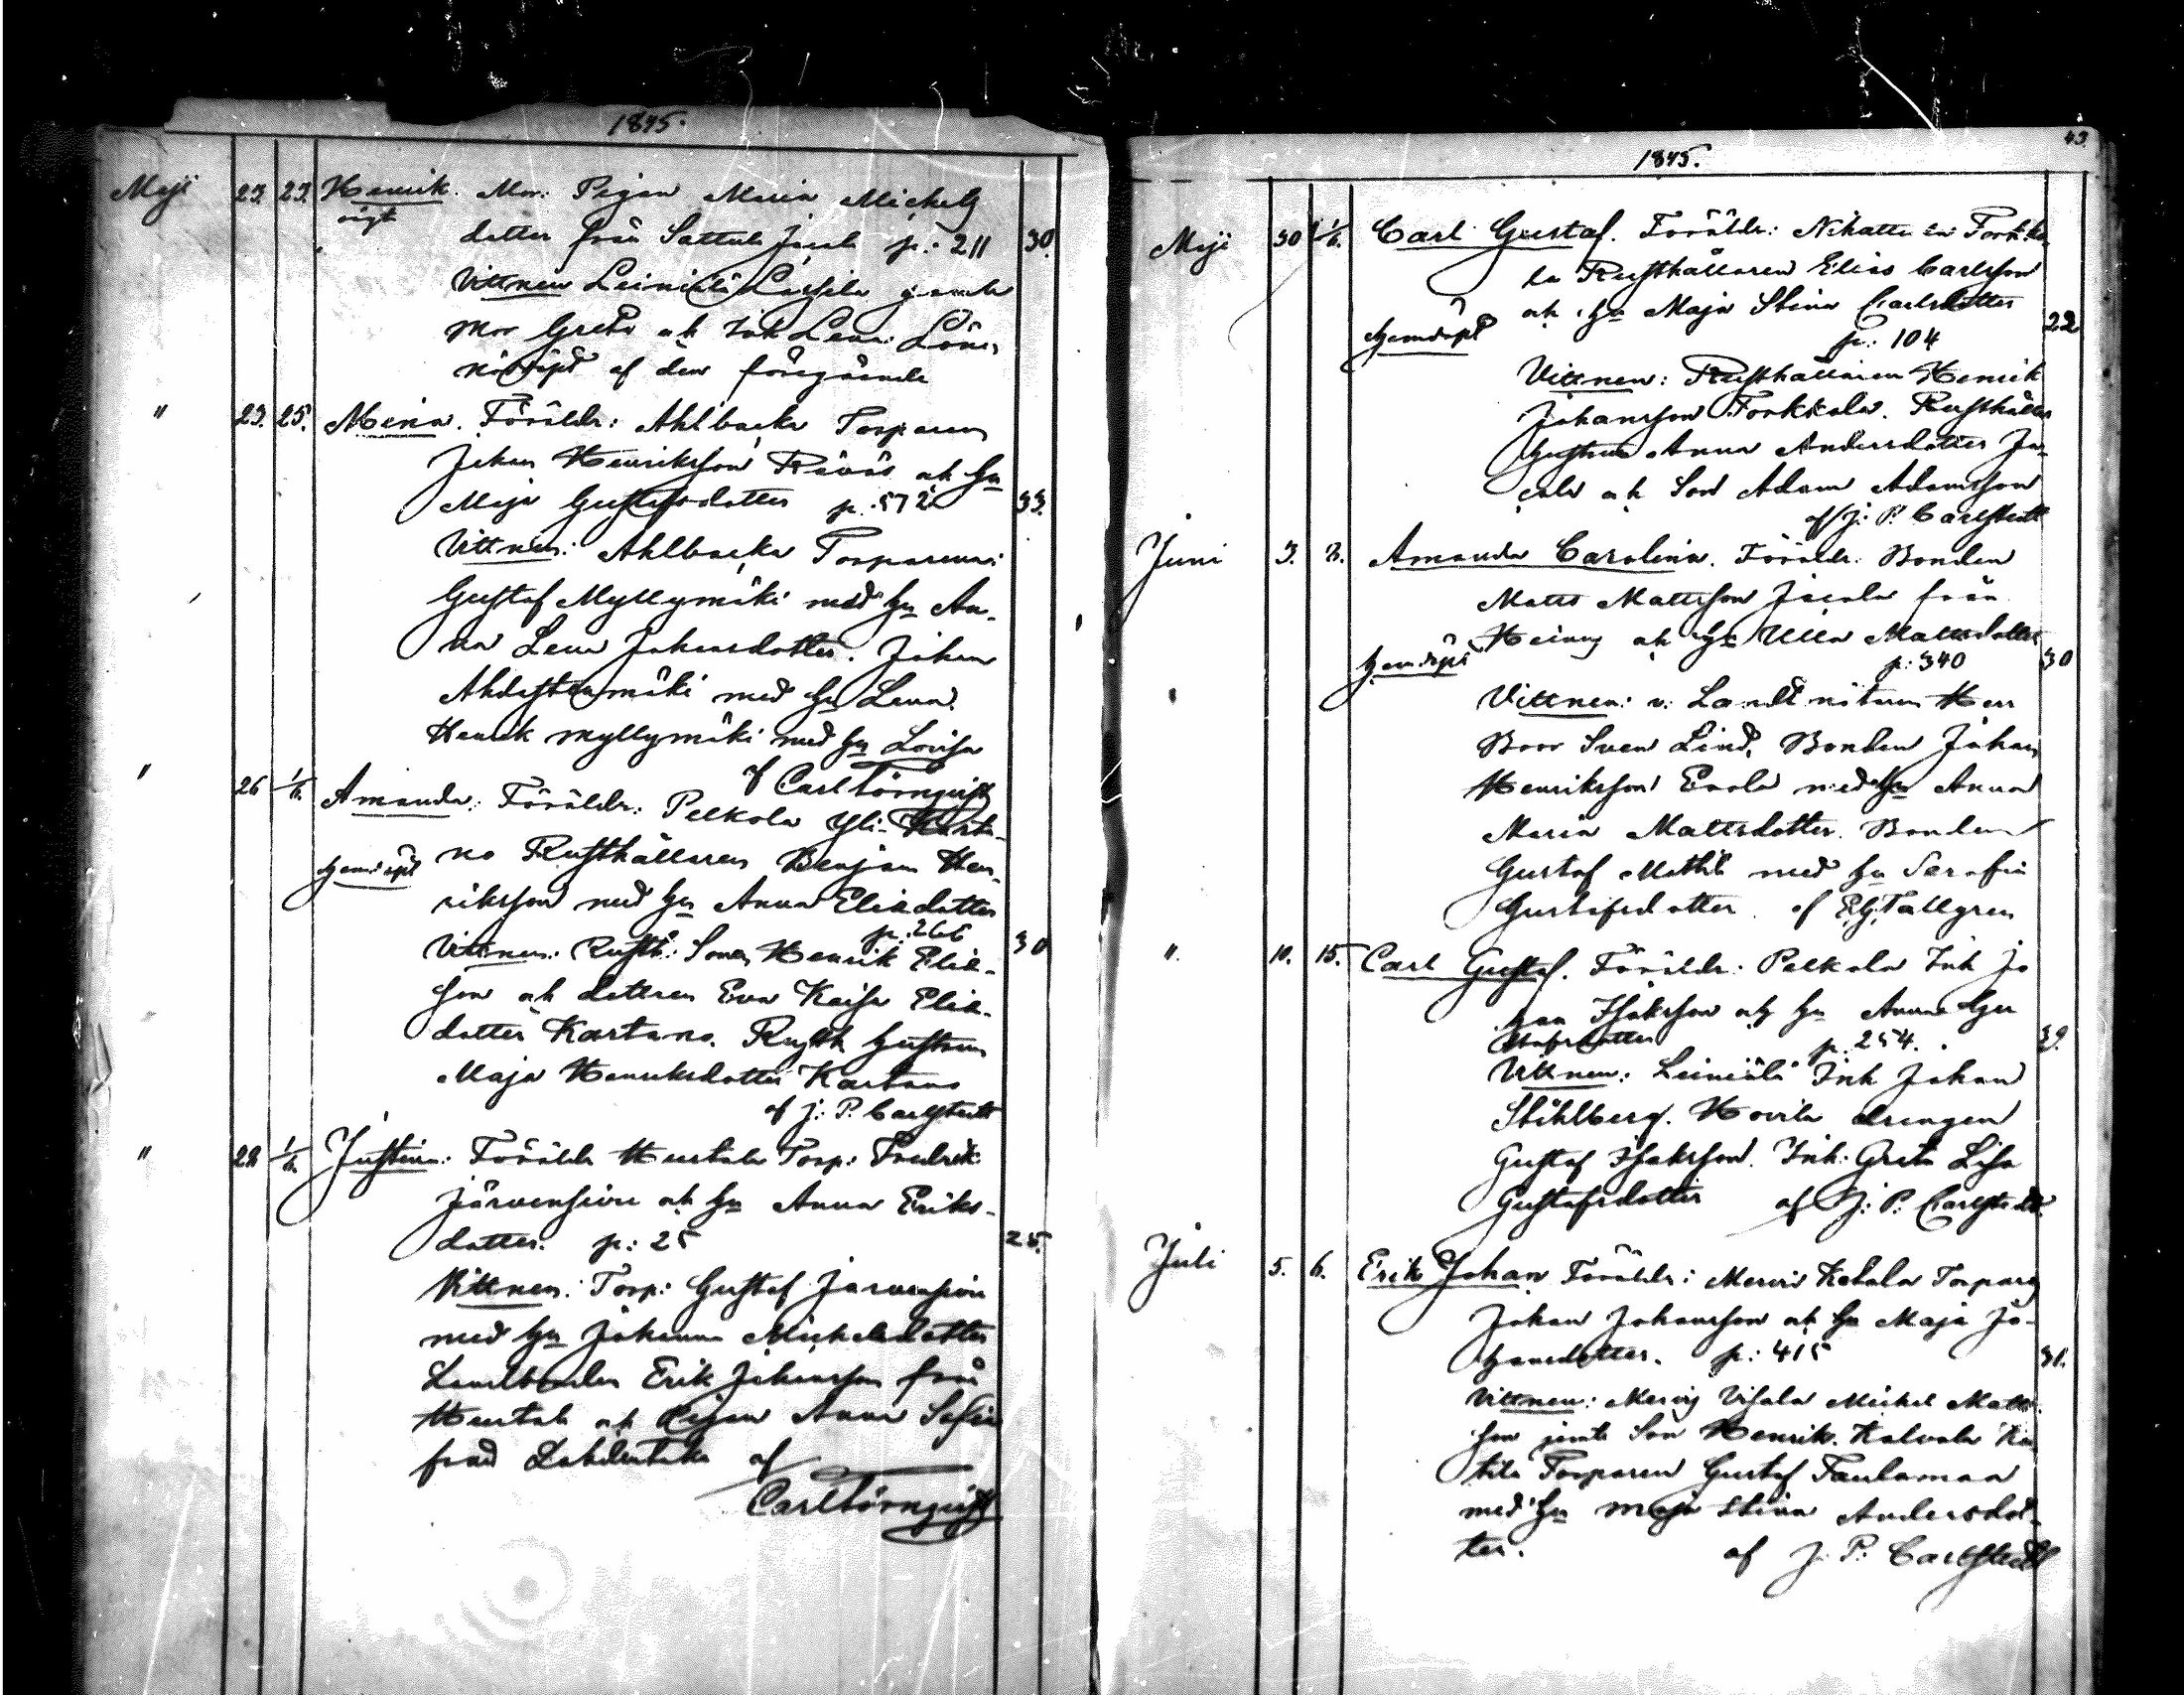 1845.
Maji 23. 23. Henrik. Mor: Pigan Maria Michels
oägt
dotter från Sattula Jacala p: 211 30.
Vittnen Leiniälä Lassila gamla
Mor Greta och Inh Lena
nöddöpt af den föregående
" 23. 25. Mina. Föräldr: Ahlbacka Torparen
Johan Henriksson och hu
Maja Gustafsdotter p: 572 33.
Vittnen: Ahlbacka Torparena:
Gustaf Myllymäki med hu An-
na Lena Johansdotter. Johan
med hu Lena.
Henrik Myllymäki med hu Lovisa
af Carl Törnqvist
" 26 1/6. Amanda. Föräldr: Pelkola Yli-Karta-
no Rusthållaren Benjam Hen-
hemdöpt
riksson med hu Anna Eliedotter
p: 266 30
Vittnen: Rusth: Sonen Henrik Elie-
son och dottren Eva Kaisa Elie-
dotter Kartano. Rusth hustrun
Maja Henriksdotter Kartano
af J: P. Carlstedt
" 28 1/6. Justina: Föräldr Hurtala Torp: Fredrik
Järvensivu och hu Anna Eriks-
dotter. p: 25 25.
Vittnen: Torp: Gustaf Järvensivu
med hu Johanna Michelsdotter
Landbonden Erik Johansson från
Hurtala och Pigan Anna Sofia
från af
Carl Törnqvist
43.
1845.
Maji 30 1/6. Carl Gustaf. Föräldr: Nihattula Torkko-
la Rusthållaren Elias Carlsson
och hu Maja Stina Carlsdotter 22
hemdöpt
p: 104
Vittnen: Rusthållaren Henrik
Johansson Torkkola. Rusthållar
hustrun Anna Andersdotter Ja-
cala och Son Adam Adamsson
af J: P. Carlstedt
Juni 3. 8. Amanda Carolina. Föräldr: Bonden
Matts Mattsson Jacala från
och hu Ulla Mattsdotter
hemdöpt p: 340 30
Vittnen: v. Landtnäturen Herr
Sven Lind. Bonden Johan
Henriksson Eerola med hu Anna
Maria Mattsdotter. Bonden
Gustaf Mattila med hu Serafia
Gustafsdotter. af E.G. Tallgren
" 10. 15. Carl Gustaf. Föräldr: Pelkola Inh Jo
han Isaksson och hu Anna Gu
stafsdotter p: 254. 39.
Vittnen: Leiniälä Inh Johan
Ståhlberg. Hovila drengen
Gustaf Isaksson. Inh: Greta Lisa
Gustafsdotter af J: P. Carlstedt.
Juli 5. 6. Erik Johan Föräldr: Mervi Ketola Torparen
Johan Johansson och hu Maja Jo-
hansdotter. p: 415 31.
Vittnen: Mervi Uksala Michel Matts-
son jemte Son Henrik. Kalvola
tila Torparen Gustaf Taulamaa
med hu Maja Stina Andersdot-
ter. af J: P: Carlstedt